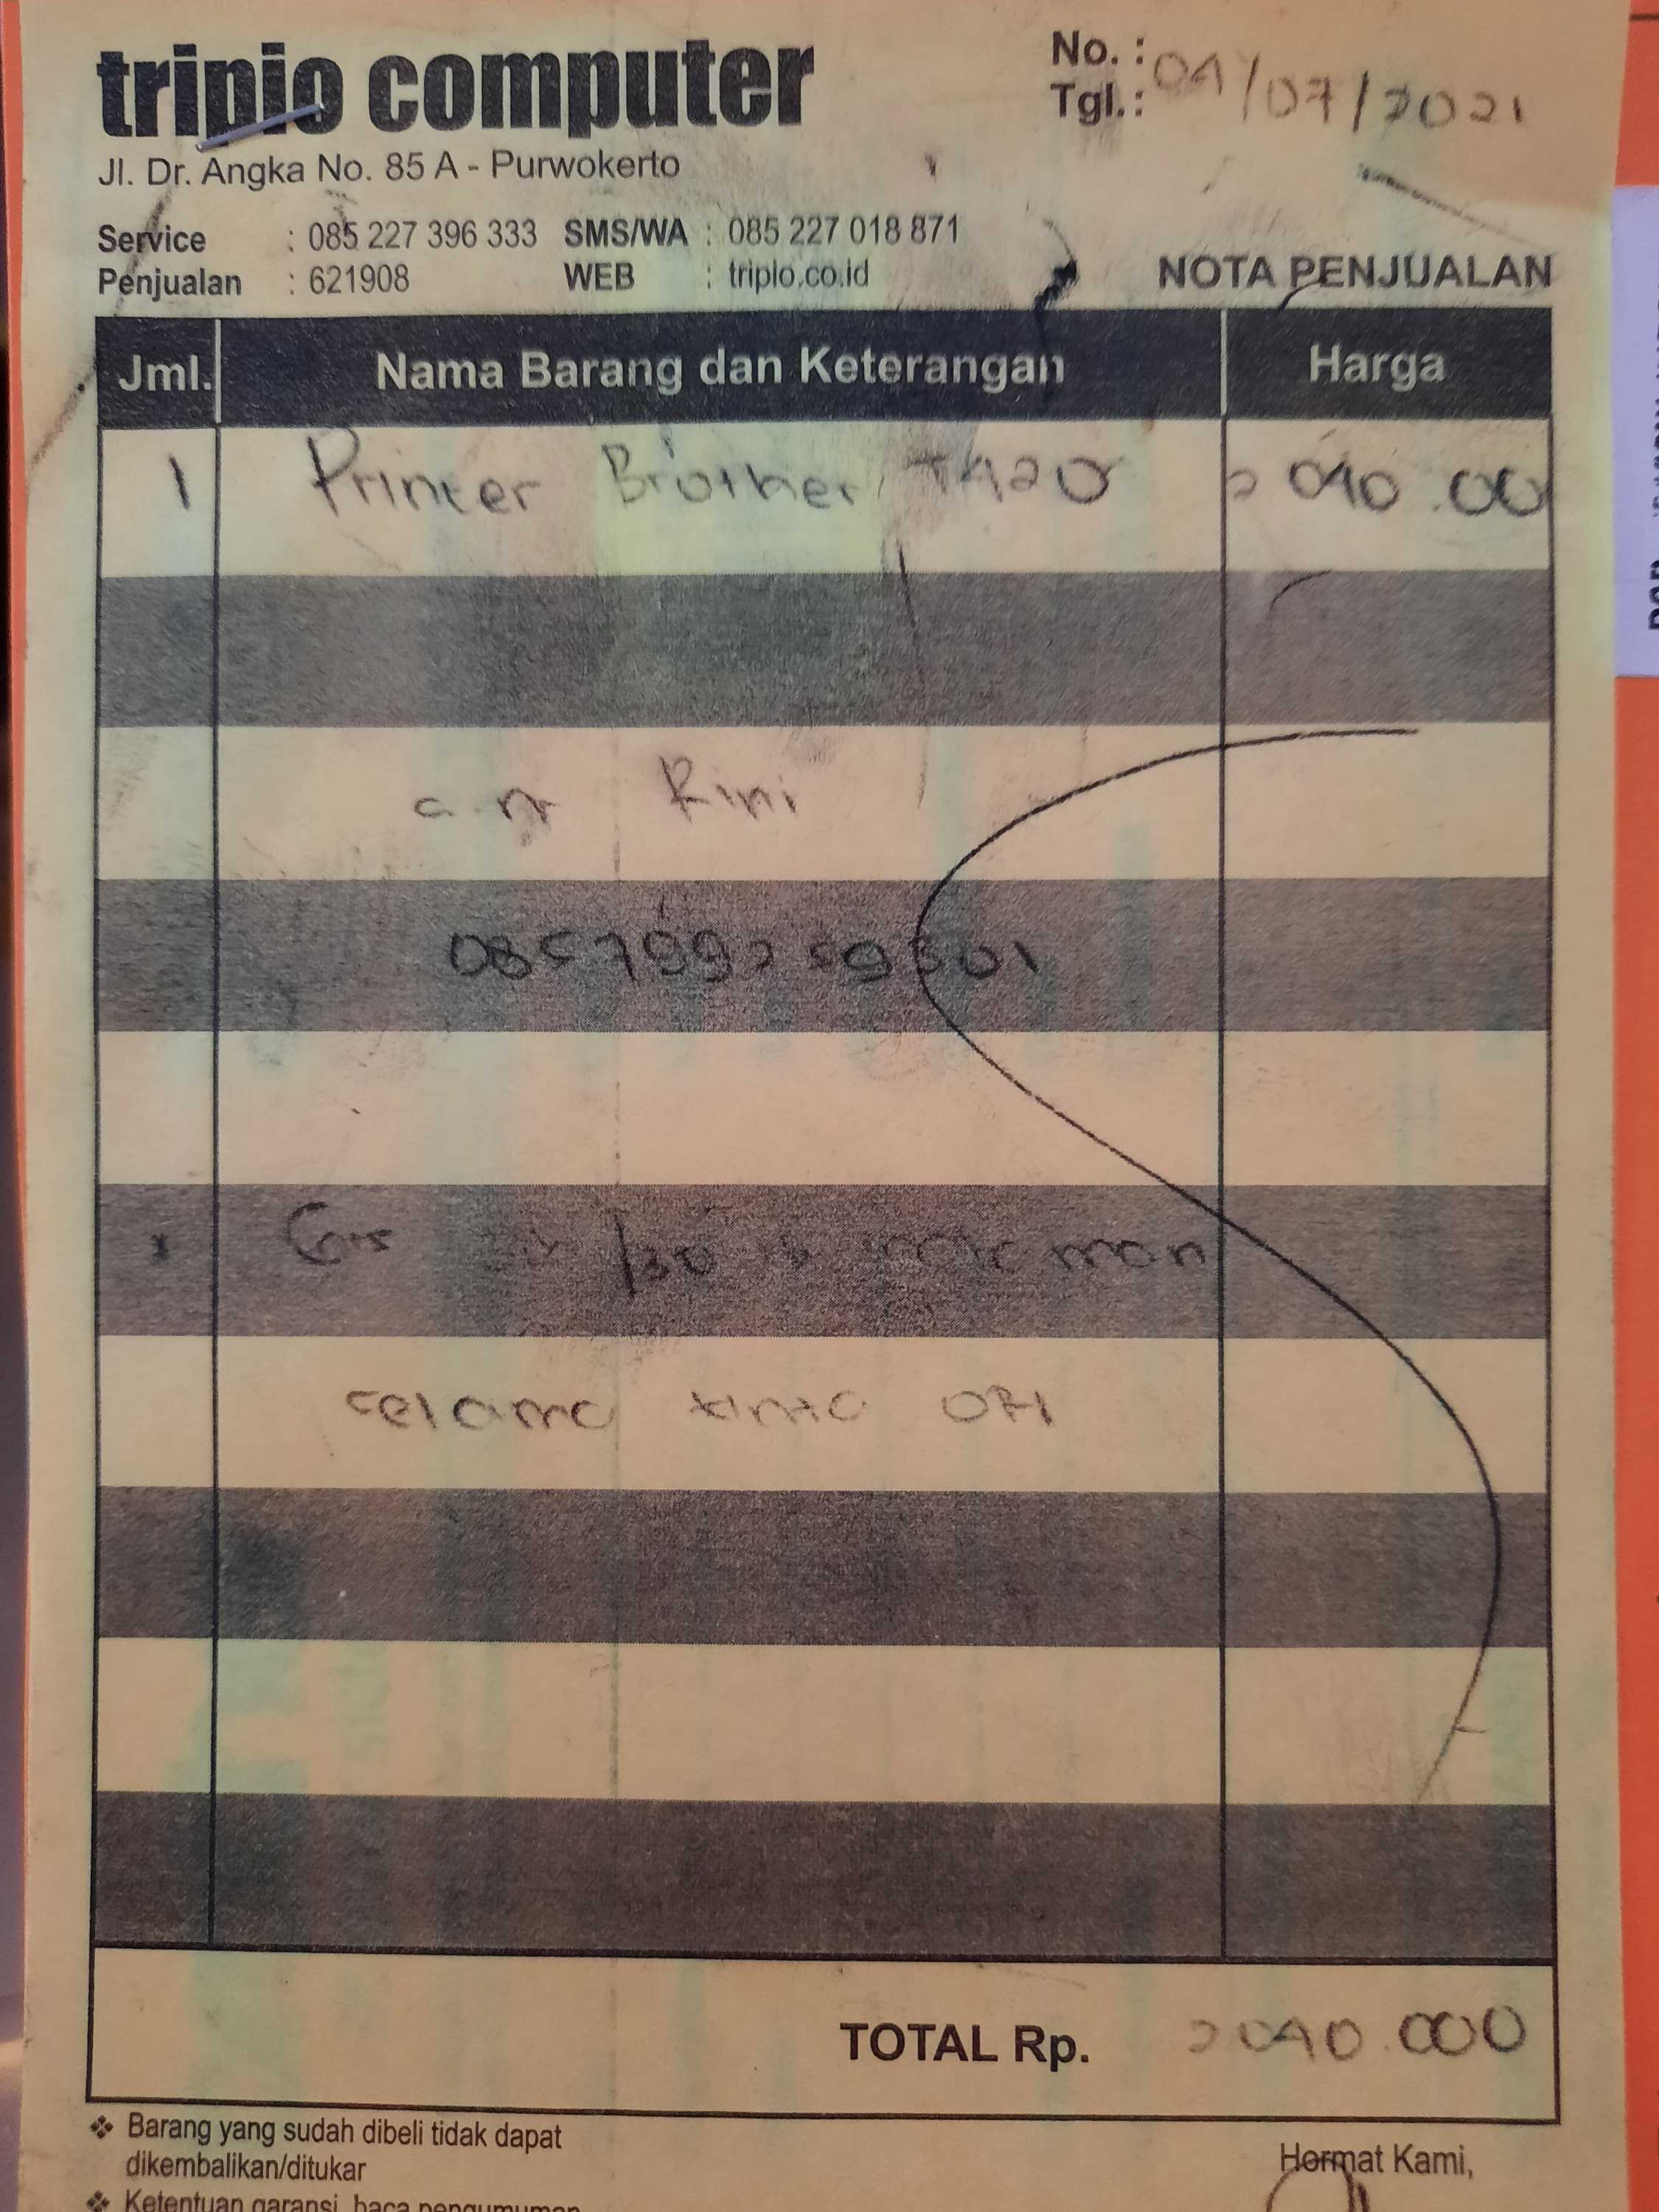 triplo computer
No. :
Tgl. : 04/07/2021
Jl. Dr. Angka No. 85 A - Purwokerto
Service : 085 227 396 333 SMS/WA : 085 227 018 871
Penjualan : 621908 WEB : triplo.co.id
NOTA PENJUALAN
Jml. Nama Barang dan Keterangan Harga
1 Printer Brother T420 2 040.00
a.n Rini
/30
selama tinta ori
TOTAL Rp. 2040.000
❖ Barang yang sudah dibeli tidak dapat
dikembalikan/ditukar
Hormat Kami,
❖ Ketentuan garansi, baca pengumuman